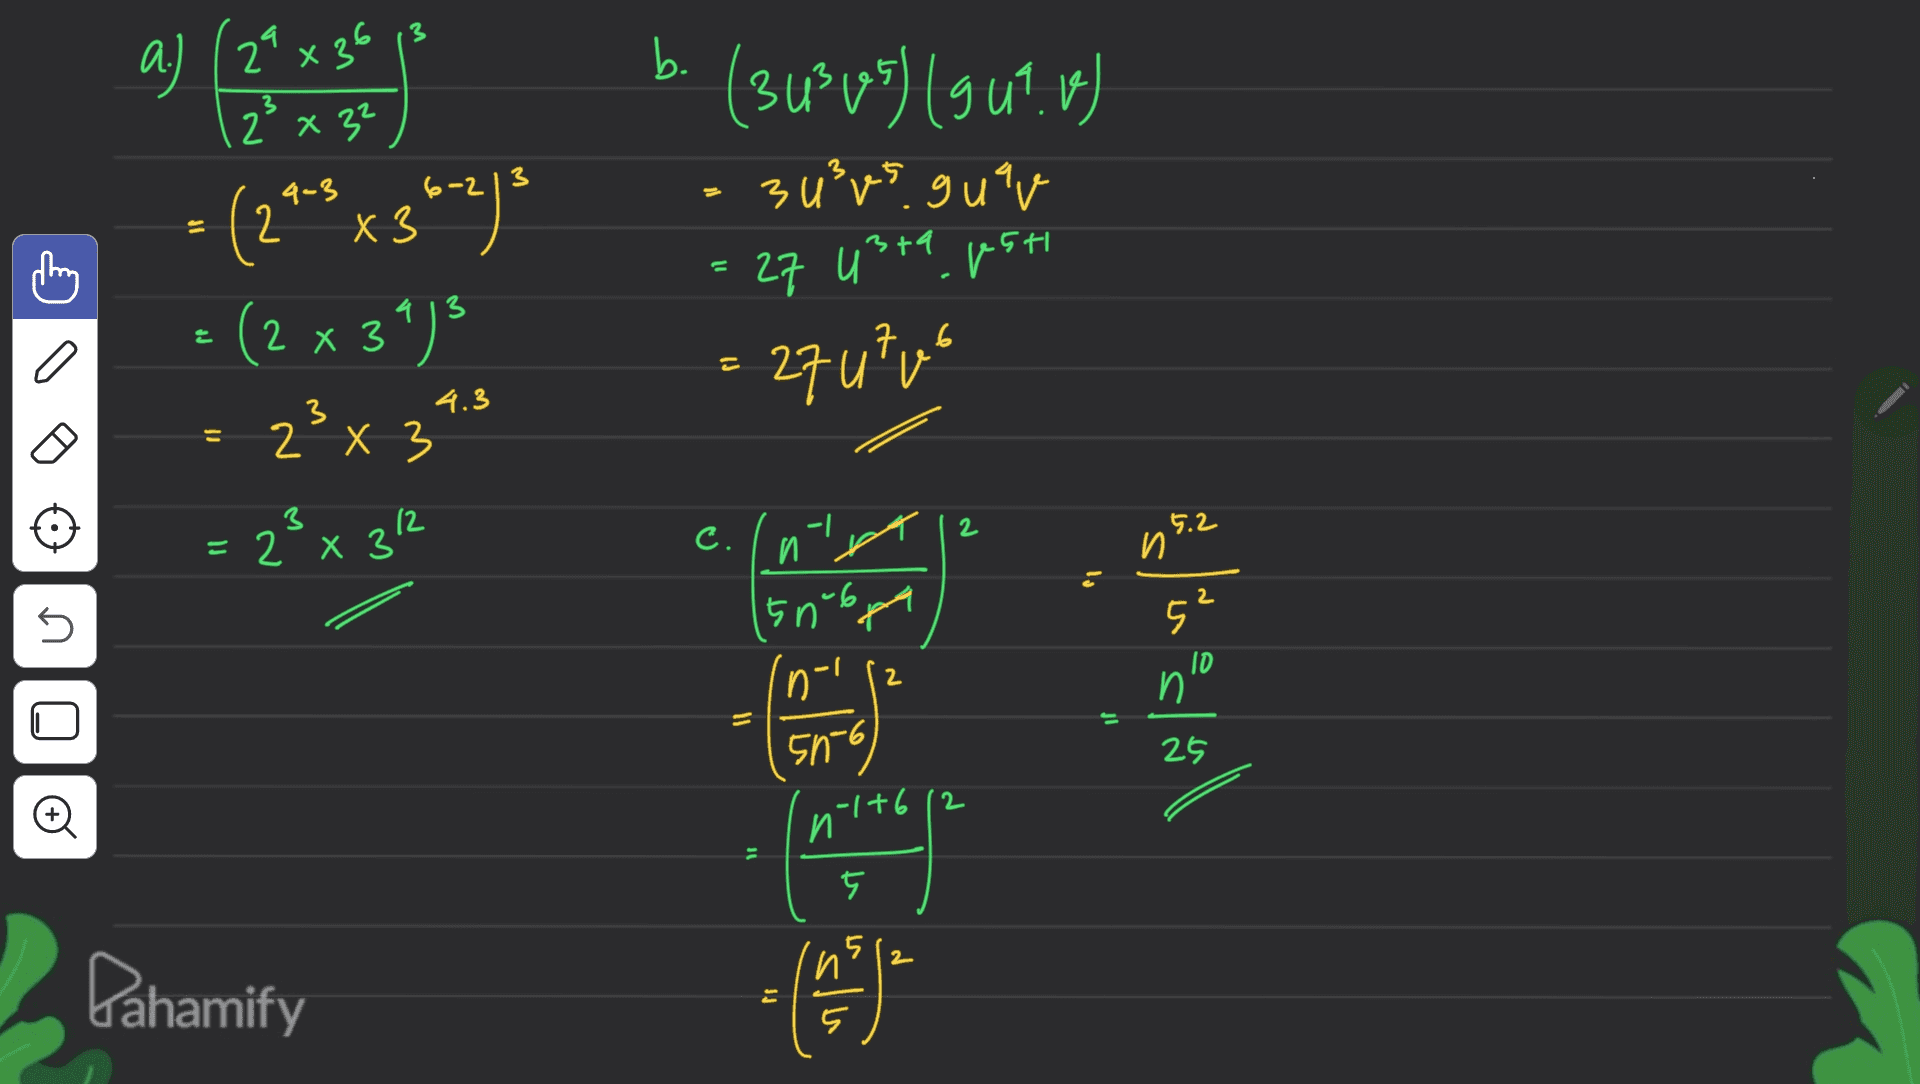 a.) (2^4 x 3^6 / 2^3 x 3^2)^3
= (2^{4-3} x 3^{6-2})^3
= (2 x 3^4)^3
= 2^3 x 3^{4.3}
= 2^3 x 3^{12}
b. (3u^3 v^5)(9u^4.v)
= 3u^3v^5.9u^4v
= 27 u^{3+4}.v^{5+1}
= 27u^7v^6
c. (n^{-1} r^4 / 5n^{-6} r^4)^2
= (n^{-1} / 5n^{-6})^2
= (n^{-1+6} / 5)^2
= (n^5 / 5)^2
= n^{5.2} / 5^2
= n^{10} / 25
Pahamify